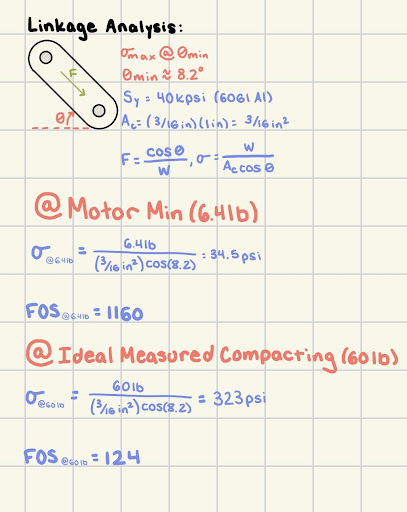 Linkage Analysis:
F
θ
σmax @ θmin
θmin ≈ 8.2°
Sy = 40kpsi (6061 Al)
Ac = (3/16 in)(1in) = 3/16 in²
F = cosθ/W , σ = W/(Ac cosθ)
@ Motor Min (6.4lb)
σ@6.4lb = 6.4lb/((3/16 in²)cos(8.2)) = 34.5psi
FOS@6.4lb = 1160
@ Ideal Measured Compacting (60lb)
σ@60lb = 60lb/((3/16 in²)cos(8.2)) = 323psi
FOS@60lb = 124